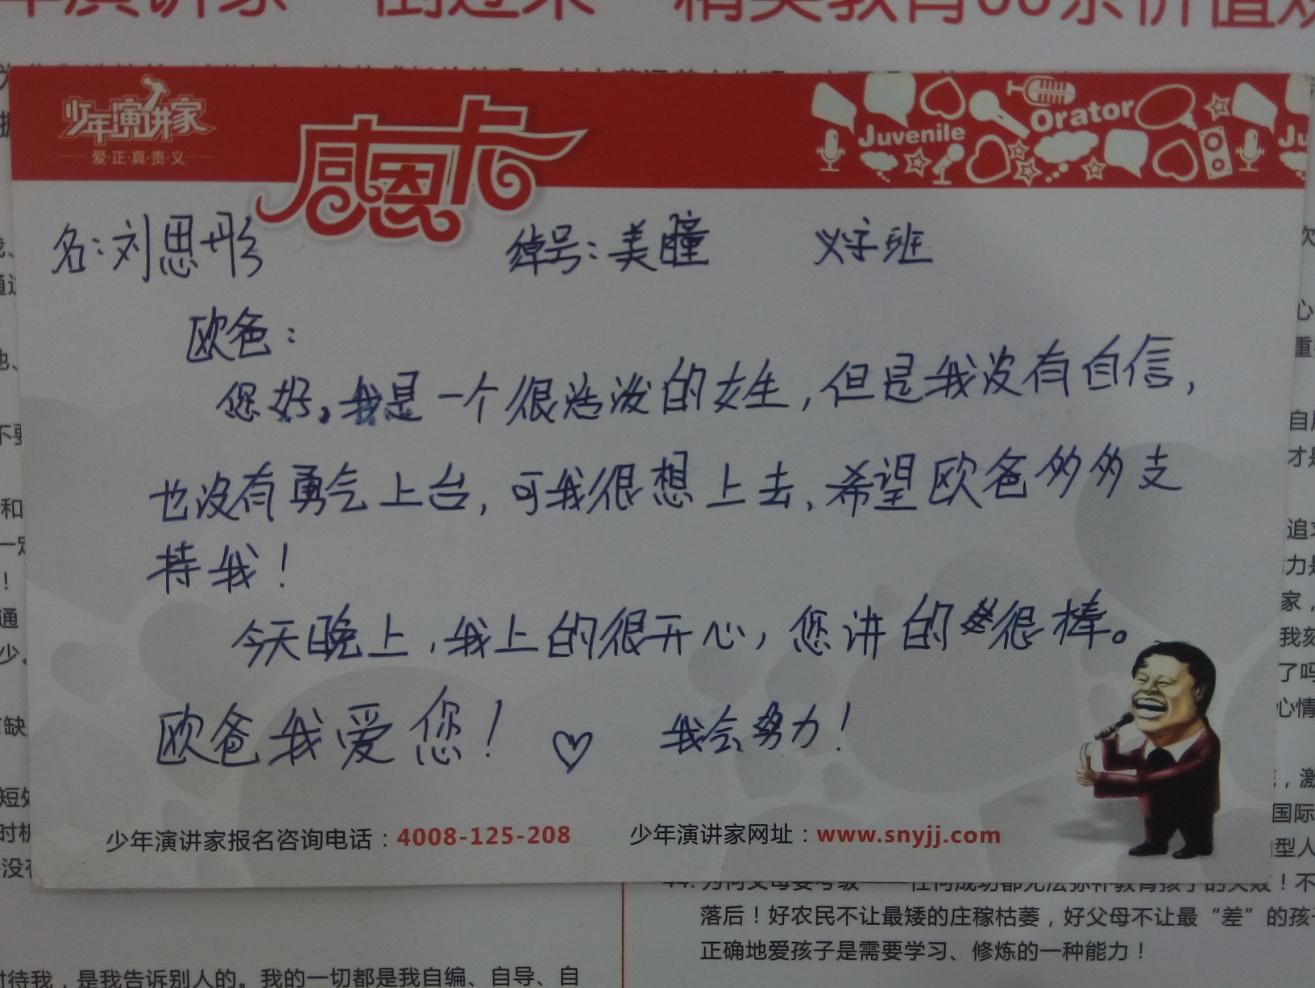 年演讲家“倒过来”精英教育60条价值观
少年演讲家
爱·正·真·责·义
感恩卡
Juvenile
Orator
Ju
名:刘思彤 绰号:美瞳 义字班
欧爸:
您好。我是一个很活泼的女生,但是我没有自信,
也没有勇气上台,可我很想上去,希望欧爸多多支
持我!
今天晚上,我上的很开心,您讲的很棒。
欧爸我爱您!♡ 我会努力!
少年演讲家报名咨询电话:4008-125-208 少年演讲家网址:www.snyjj.com
落后!好农民不让最矮的庄稼枯萎,好父母不让最“差”的孩
正确地爱孩子是需要学习、修炼的一种能力!
待我,是我告诉别人的。我的一切都是我自编、自导、自